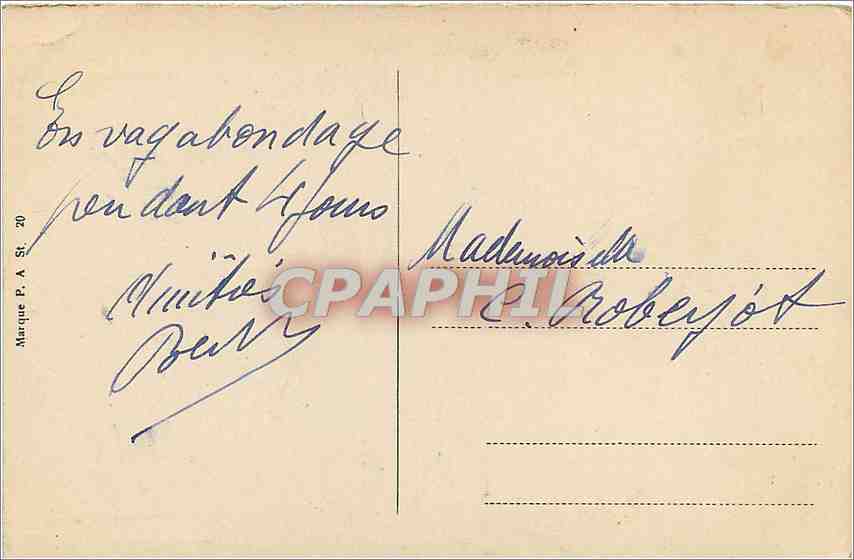 En vagabondage
pendant 4 jours
Amitiés
Mademoiselle
C. Roberjot
Marque P. A St. 20
CPAPHIL